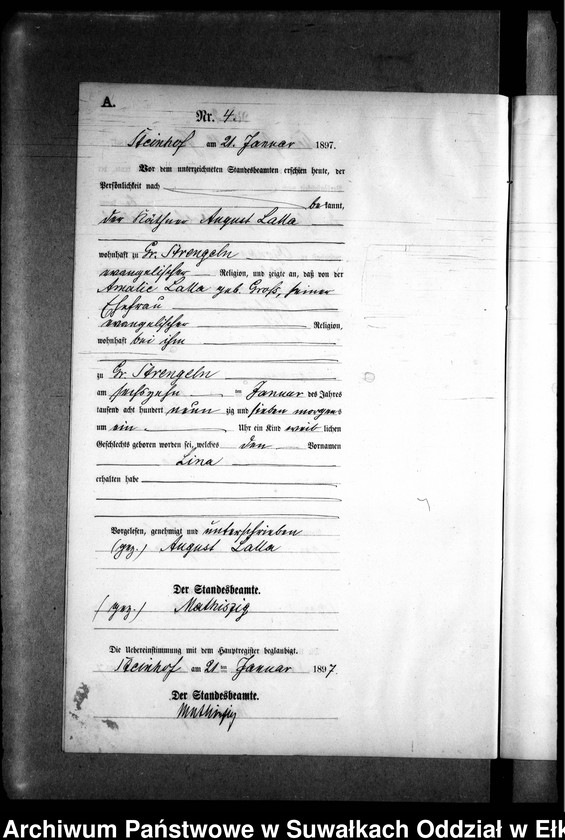 A.
Nr. 4.
Steinhof am 21. Januar 1897.
Vor dem unterzeichneten Standesbeamten erschien heute, der
Persönlichkeit nach
bekannt,
der Käthner August Lalla
wohnhaft zu Gr. Strengeln
evangelischer Religion, und zeigte an, daß von der
Amalie Lalla geb. Groß, seiner
Ehefrau
evangelischer Religion,
wohnhaft bei ihm
zu Gr. Strengeln
am sechszehn ten Januar des Jahres
tausend acht hundert neun zig und sieben morgens
um ein Uhr ein Kind weib lichen
Geschlechts geboren worden sei, welches den Vornamen
Lina
erhalten habe
Vorgelesen, genehmigt und unterschrieben
(gez.) August Lalla
Der Standesbeamte.
(gez.) Mathiszig
Die Uebereinstimmung mit dem Hauptregister beglaubigt.
Steinhof am 21 ten Januar 1897.
Der Standesbeamte.
Mathiszig
Archiwum Państwowe w Suwałkach Oddział w Ełk